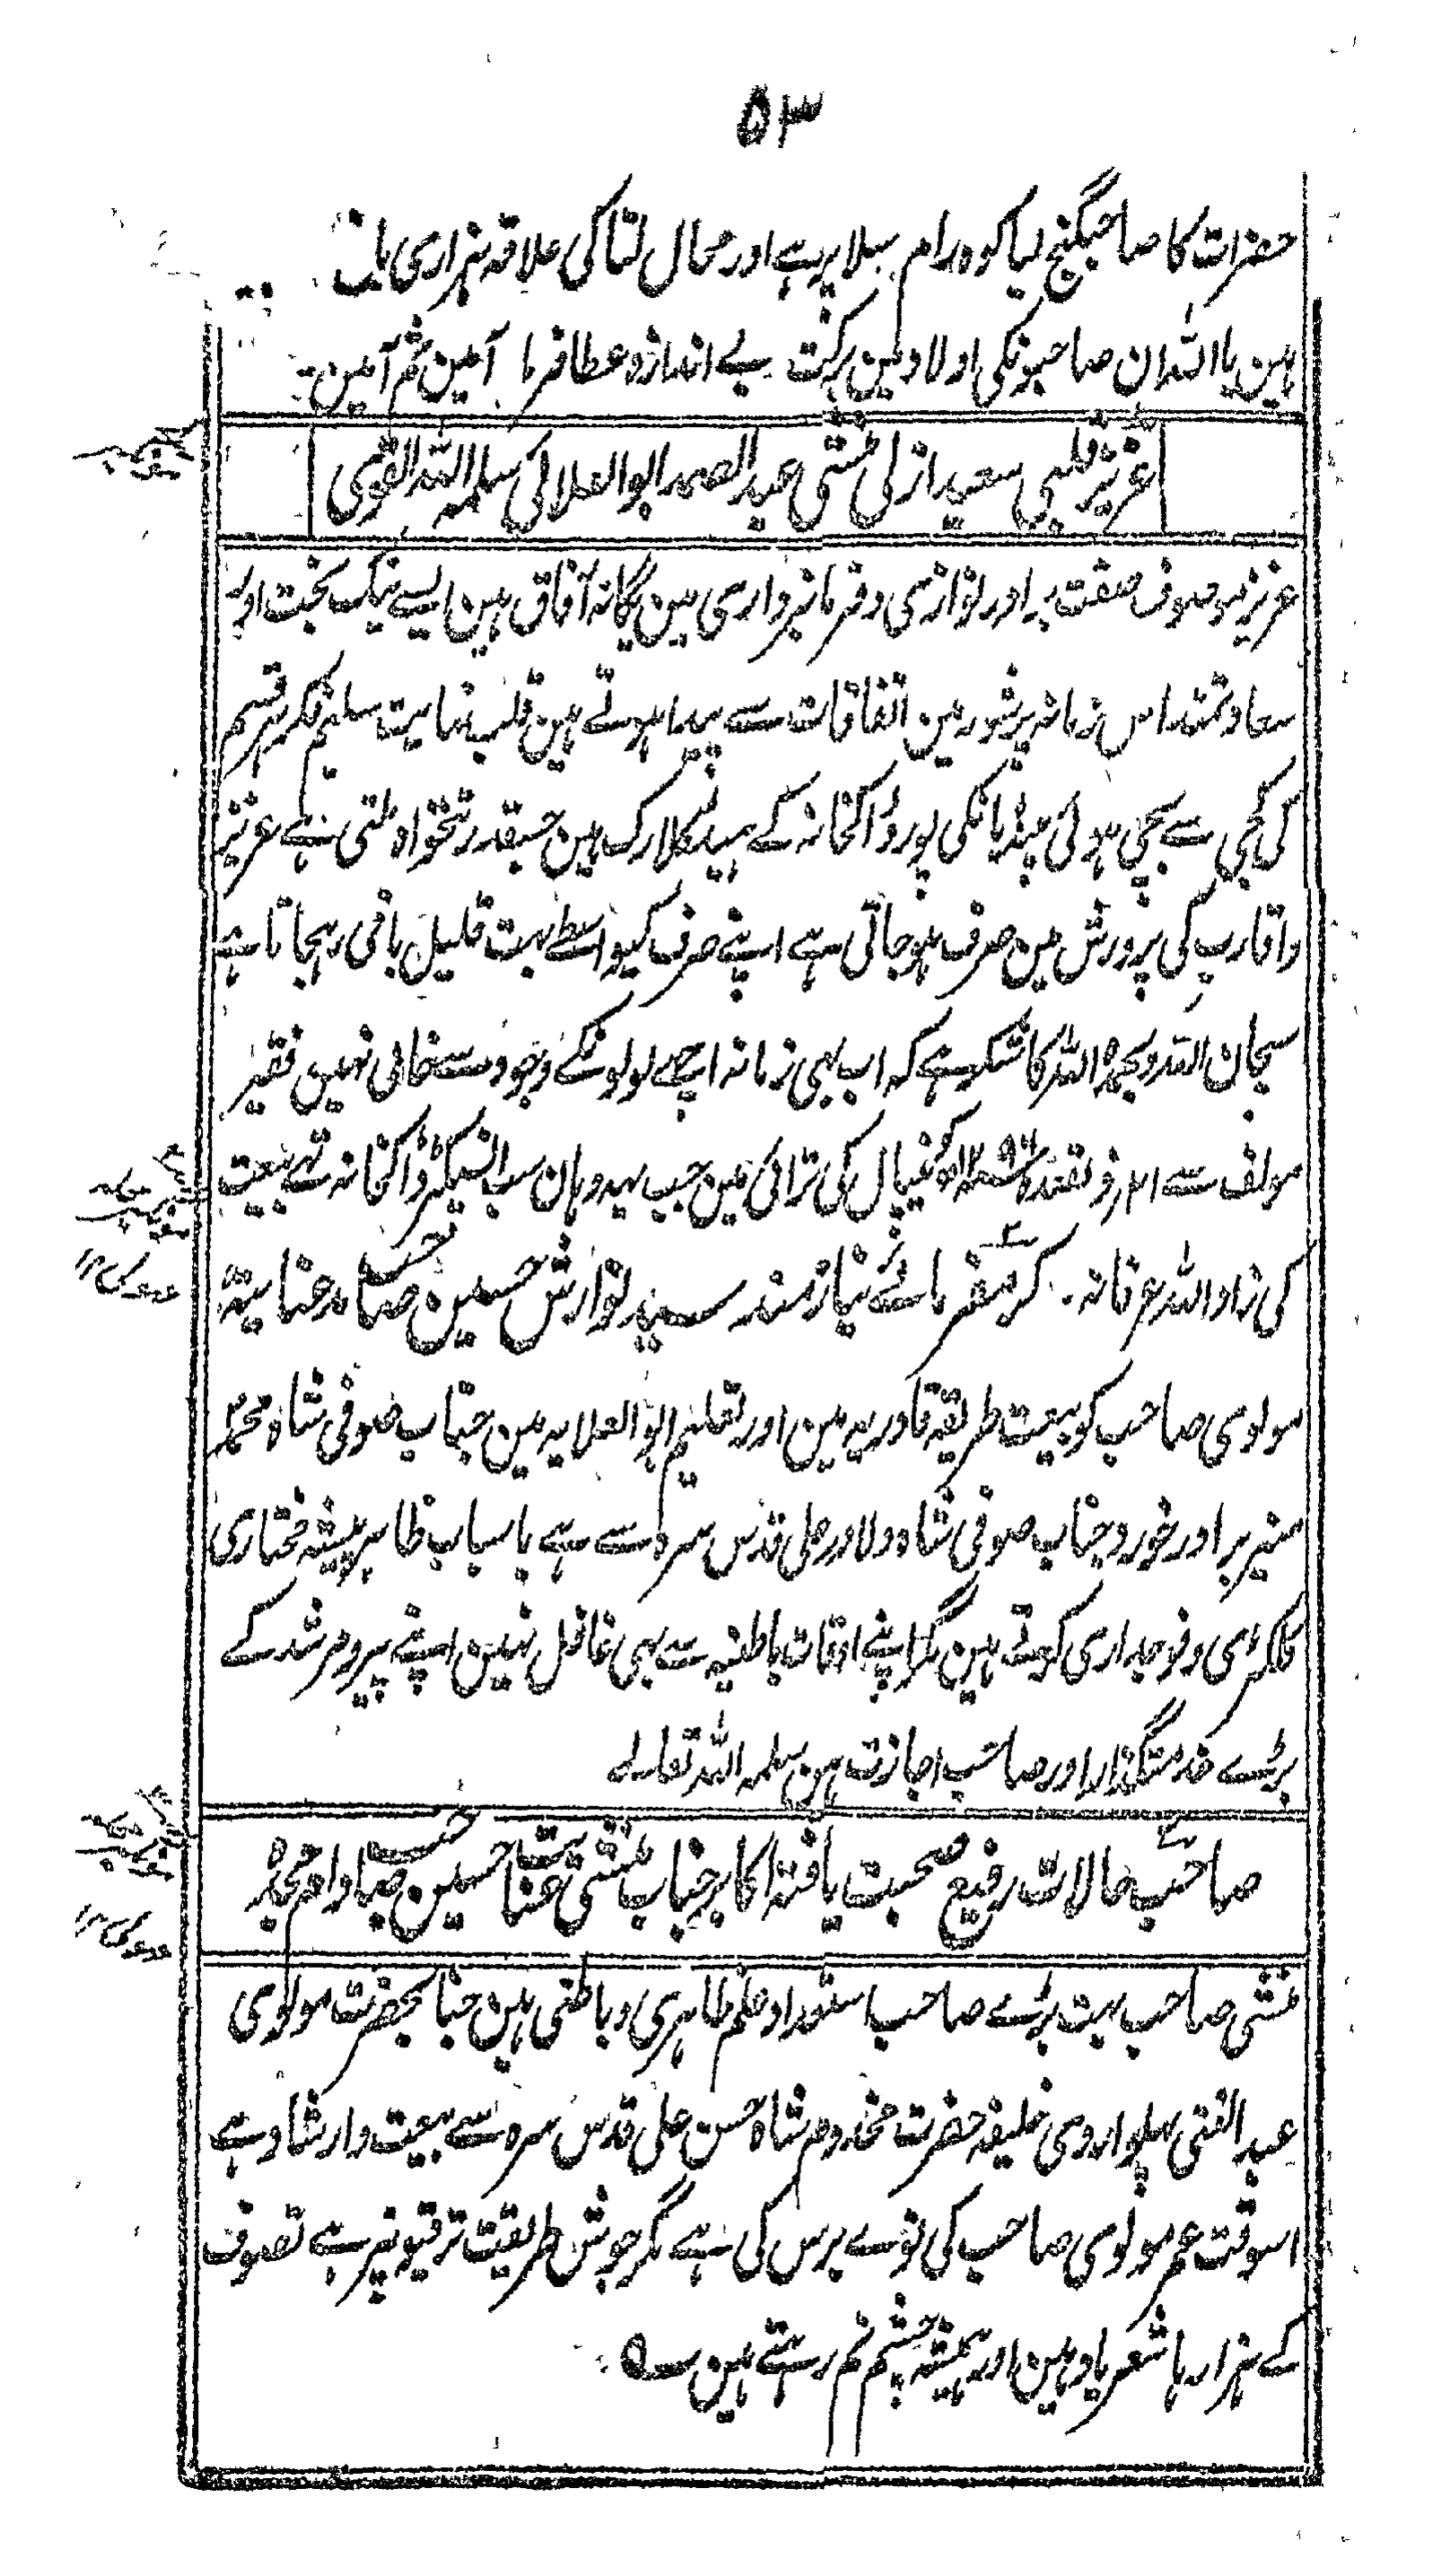 ۵۳
حضرات کا صاحبگنج لیا کوہ رام بیلا پر ہے اور محال لتا کی علاقہ ہزاری باغ
ہین یا اللہ ان صاحبونکی اولاد مین برکت بے اندازہ عطا فرما آمین ثم آمین۔
عزیز قلبی سعید ازلی منشی عبد الصمد ابو العلائی سلمہ اللہ القوی
عزیز موصوف صفت برادر نوازی و فرمانبرداری مین یگانہ آفاق ہین ایسے نیک بخت اور
سعادتمند اس زمانہ پرشور مین اتفاقات سے پیدا ہوتے ہین قلب نہایت سلیم فکر ہر قسم
کی کجی سے بچی ہوئی بانکی پور ڈاکخانہ کے ہیڈ کلارک ہین جسقدر تنخواہ ملتی ہے عزیز
واقارب کی پرورش مین صرف ہوجاتی ہے اپنے صرف کیواسطے بہت قلیل باقی رہجاتا ہے
سبحان اللہ وبحمدہ اللہ کا شکر ہے کہ اب بہی زمانہ اچھے لوگونکے وجود سے خالی نہین فقیر
مولف سے ۲۱ ذوقعدہ ۱۲۹۶ کو نیپال کی ترائی مین جب یہ وہان سب انسپکٹر ڈاکخانہ تہے بیعت
کی زاد اللہ عرفانہ۔ کرمفرمائے نیازمند سید نوازش حسین صاحب رضا
مولوی صاحب کو بیعت طریقہ قادریہ مین اور تعلیم ابو العلایہ مین جناب صوفی شاہ محمد
منیر برادر خورد جناب صوفی شاہ دلاور علی قدس سرہ سے ہے باسباب ظاہر پیشہ مختاری
کلکٹری و فوجداری کرتے ہین مگر اپنے اوقات باطنیہ سے بہی غافل نہین اپنے پیرومرشد کے
بڑے خدمتگذار اور صاحب اجازت ہین سلمہ اللہ تعالے
صاحب حالات رفیع صحبت یافتہ اکابر جناب منشی عنایت حسین صاحب دام مجدہ
منشی صاحب بہت بڑے صاحب استعداد علم ظاہری و باطنی ہین جناب حضرت مولوی
عبد الغنی پہلواروی خلیفہ حضرت مخدوم شاہ حسن علی قدس سرہ سے بیعت وارشاد ہے
اسوقت عمر مولوی صاحب کی نوے برس کی ہے مگر جوش طریقت ترقیونپر ہے تصوف
کے ہزارہا شعر یاد ہین اور ہمیشہ چشم نم رہتے ہین ؎